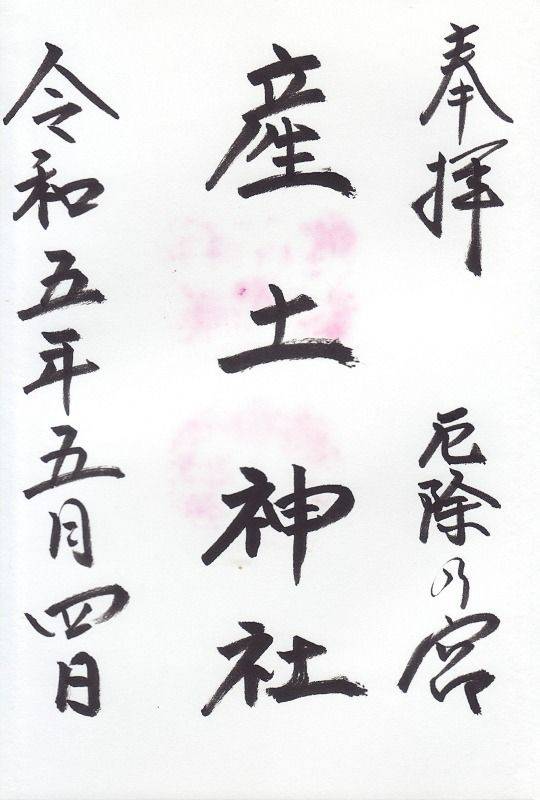 奉拝
厄除乃宮
産土神社
令和五年五月四日